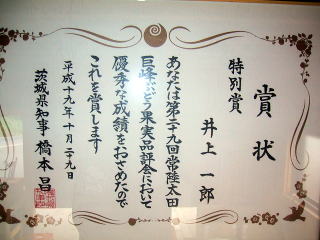 賞状
特別賞
井上一郎
あなたは第二十九回常陸太田
巨峰ぶどう果実品評会において
優秀な成績をおさめたので
これを賞します
平成十九年十月二十九日
茨城県知事 橋本昌